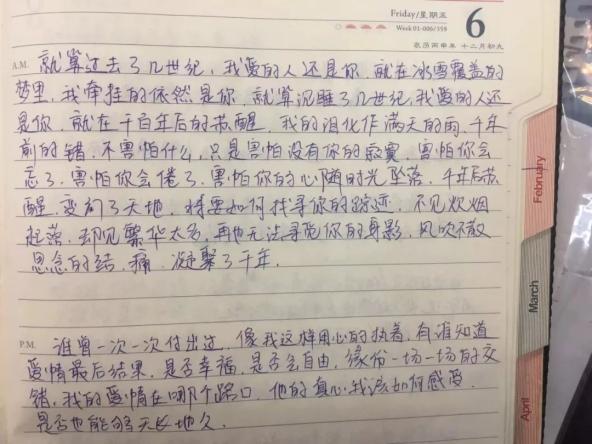 Friday/星期五
6
Week 01-006/359
农历丙申年 十二月初九
A.M. 就算过去了几世纪,我爱的人还是你,就在冰雪覆盖的
梦里,我牵挂的依然是你,就算沉睡了几世纪,我爱的人还
是你,就在千百年后的苏醒,我的泪化作满天的雨,千年
前的错,不害怕什么,只是害怕没有你的寂寞,害怕你会
忘了,害怕你会倦了,害怕你的心随时光坠落,千年后苏
醒,变幻了天地,将要如何找寻你的踪迹,不见炊烟
起落,却见繁华太多,再也无法寻觅你的身影,风吹不散
思念的结,痛,凝聚了千年.
P.M. 谁曾一次一次付出过,像我这样用心的执着,有谁知道
爱情最后结果,是否幸福,是否会自由,缘份一场一场的交
错,我的爱情在哪个路口,他的真心我该如何感受,
是否也能够天长地久.
February
March
April